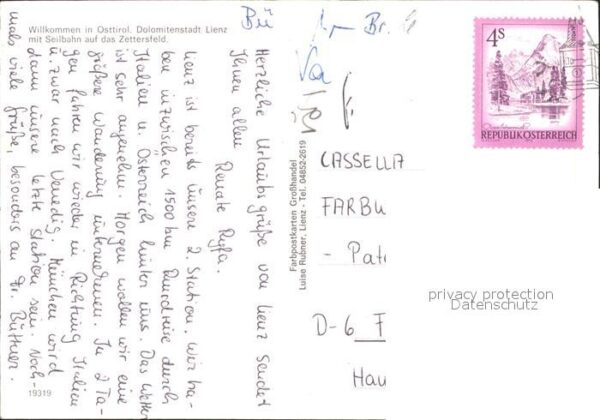 Willkommen in Osttirol. Dolomitenstadt Lienz
mit Seilbahn auf das Zettersfeld.
Herzliche Urlaubsgrüße von Lienz sendet
Ihnen allen Renate
Lienz ist bereits unsere 2. Station. Wir ha-
ben inzwischen 1500 km Rundreise durch
Italien u. Österreich hinter uns. Das Wetter
ist sehr angenehm. Morgen wollen wir eine
größere Wanderung unternehmen. In 2 Ta-
gen fahren wir wieder in Richtung Italien
u. zwar nach Venedig. München wird
dann unsere letzte Station sein. Noch-
mals viele Grüße, besonders an Dr. Büttner.
19319
Farbpostkarten Großhandel
Luise Rubner, Lienz - Tel. 04852-2619
Bü
Br.
4S
REPUBLIK ÖSTERREICH
CASSELLA
FARBU
- Pat
D-6 F
Hau
privacy protection
Datenschutz